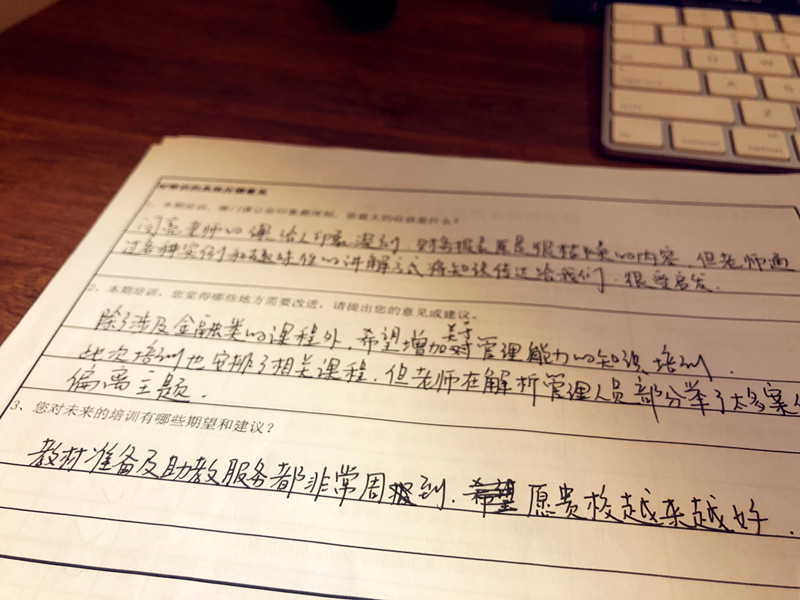 对培训的具体反馈意见
1、本期培训,哪门课让您印象最深刻,您最大的收获是什么?
闫亮老师的课给人印象深刻,财务报表原是很枯燥的内容,但老师通
过各种实例和趣味性的讲解方式将知识传达给我们,很受启发.
2、本期培训,您觉得哪些地方需要改进,请提出您的意见或建议。
除了涉及金融类的课程外,希望增加关于管理能力的知识培训.
此次培训也安排了相关课程,但老师在解析管理人员部分举了太多案
偏离主题.
3、您对未来的培训有哪些期望和建议?
教材准备及助教服务都非常周到.愿贵校越来越好.
option